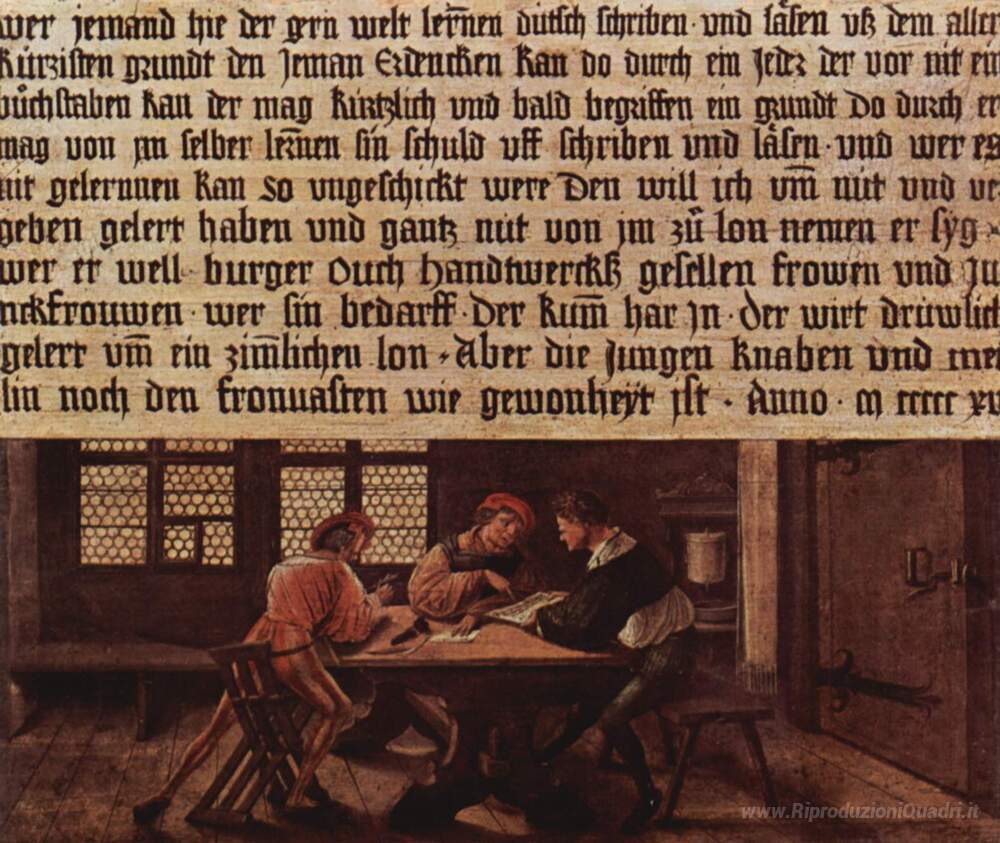 wer jemand hie der gern welt lern̄en dütsch schriben · vnd läsen vß dem aller
kürzisten grundt den Jeman Erdencken kan do durch ein Jeder der vor nit ein
bůchstaben kan der mag kürtzlich vnd bald begriffen ein grundt do durch er
mag von jm selber lern̄en sin schuld vff schriben vnd läsen · vnd wer es
nit gelernnen kan so vngeschickt were Den will ich vm̄ nüt vnd ve
geben gelert haben vnd gantz nüt von jm zů lon nemen er syg
wer er well burger Ouch handtwerckß gesellen frowen vnd Ju
nckfrouwen · wer sin bedarff · Der kum̄ har jn · der wirt drüwlich
gelert vm̄ ein zim̄lichen lon · Aber die Jungen knaben vnd mei
lin noch den fronuasten wie gewonheyt jst · Anno · m ccccc xv
www.RiproduzioniQuadri.it